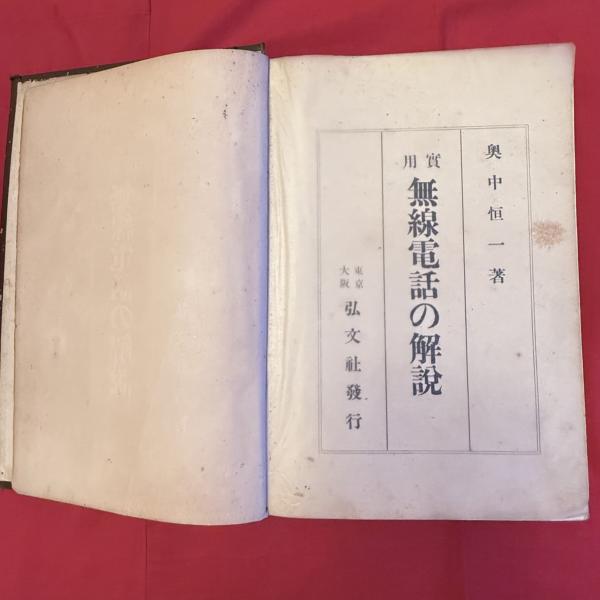 奥中恒一著
實用
無線電話の解說
東京
大阪
弘文社發行